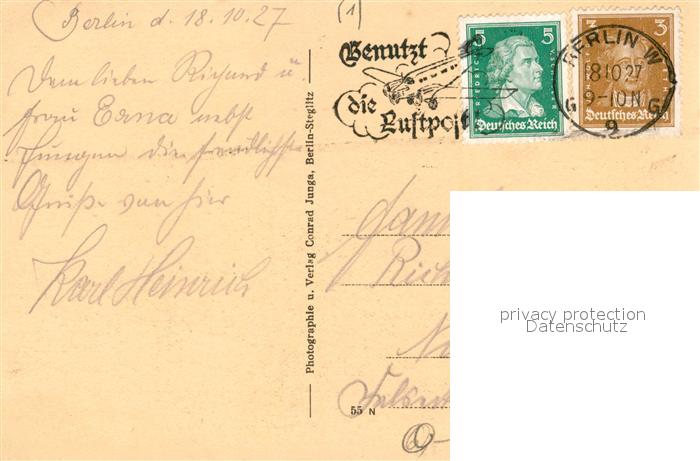 Berlin d. 18.10.27
Dem lieben Richard u.
Frau Erna nebst
Jungen die freundlichste
Grüße von hier
Karl Heinrich
Photographie u. Verlag Conrad Junga, Berlin-Steglitz
55 N
1
Benutzt
die
Luftpost
5 5
FRIEDRICH
Deutsches Reich
3 3
Deutsches Reich
BERLIN W
18.10.27
9-10 N
G G
9
privacy protection
Datenschutz